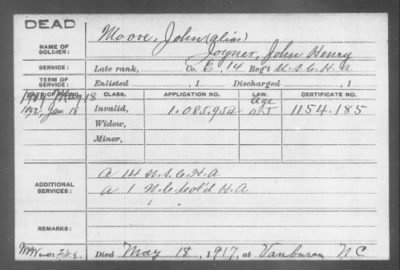 DEAD
Moore, John (alias)
NAME OF SOLDIER:
Joyner, John Henry
SERVICE: Late rank, Co. E, 14 Reg't U.S.C.H.A.
TERM OF SERVICE: Enlisted , 1 Discharged , 1
CLASS. APPLICATION NO. LAW. CERTIFICATE NO.
May 18
Age
1892, Jan 18 Invalid, 1.085.954 1154.185
Widow,
Minor,
ADDITIONAL SERVICES:
A 14 U.S.C.H.A
A 1 N.C. Col'd H.A.
REMARKS:
Died May 18, 1917, at Vanburen NC